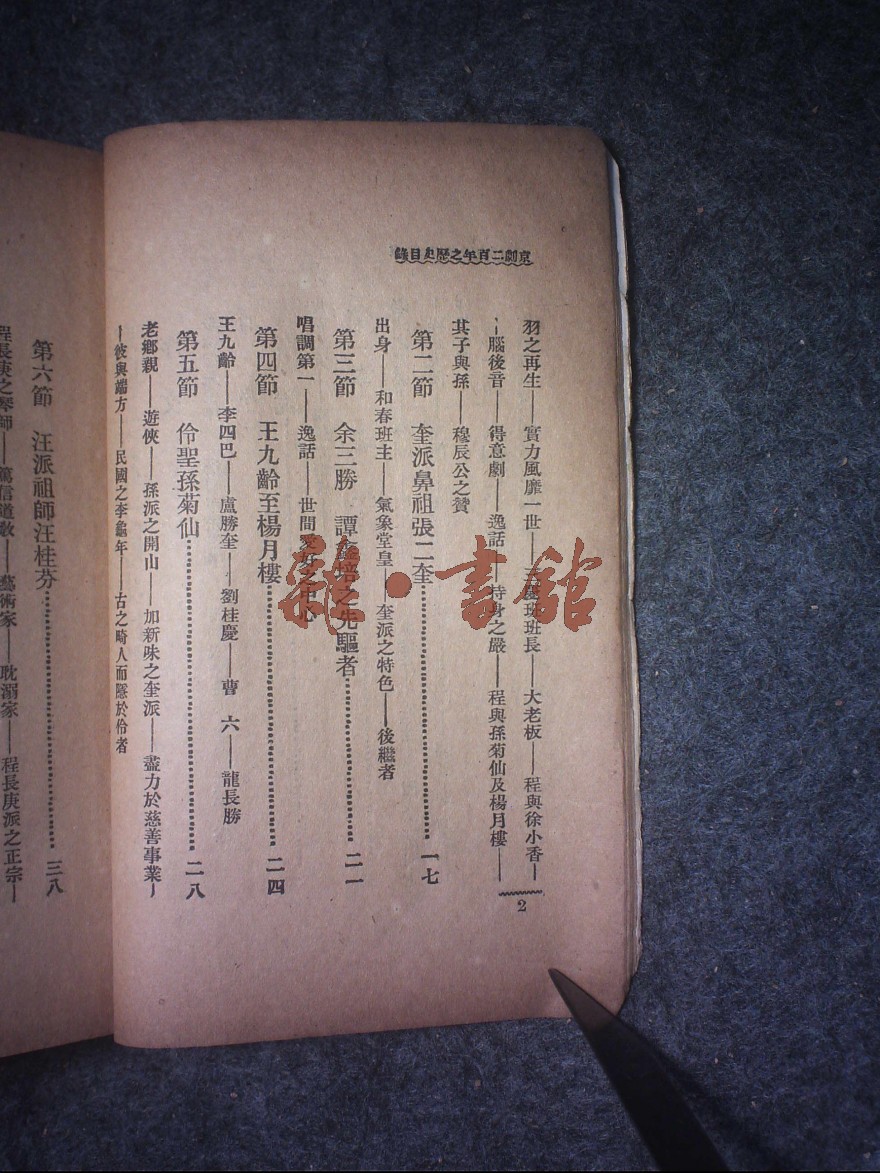 京劇二百年之歷史目錄
羽之再生——實力風靡一世——三慶班班長——大老板——程與徐小香—
—腦後音——得意劇——逸話——持身之嚴——程與孫菊仙及楊月樓——
其子與孫——穆辰公之贊
第二節　奎派鼻祖張二奎…………一七
出身——和春班主——氣象堂皇——奎派之特色——後繼者
第三節　余三勝　譚鑫培之先驅者…………二一
唱調第一——逸話——世間愛好之中心
第四節　王九齡至楊月樓…………二四
王九齡——李四巴——盧勝奎——劉桂慶——曹　六——龍長勝
第五節　伶聖孫菊仙…………二八
老鄉親——遊俠——孫派之開山——加新味之奎派——盡力於慈善事業—
—彼與端方——民國之李龜年——古之畸人而隱於伶者
2
第六節　汪派祖師汪桂芬…………三八
程長庚之琴師——篤信道教——藝術家——耽溺家——程長庚派之正宗—
雜·書館